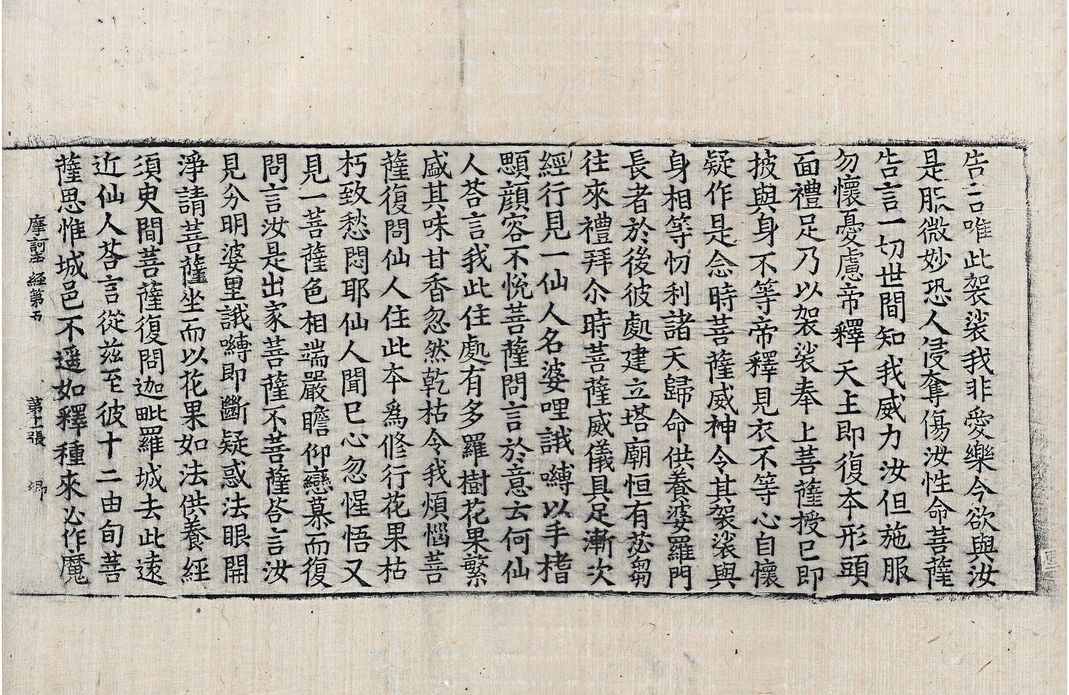 告言唯此袈裟我非愛樂今欲與汝
是服微妙恐人侵奪傷汝性命菩薩
告言一切世間知我威力汝但施服
勿懷憂慮帝釋天主即復本形頭
面禮足乃以袈裟奉上菩薩授已即
披與身不等帝釋見衣不等心自懷
疑作是念時菩薩威神令其袈裟與
身相等忉利諸天歸命供養婆羅門
長者於後彼處建立塔廟恒有苾芻
往來禮拜尒時菩薩威儀具足漸次
經行見一仙人名婆哩誐嚩以手搘
顋顔容不悅菩薩問言於意云何仙
人荅言我此住處有多羅樹花果繁
盛其味甘香忽然乾枯令我煩惱菩
薩復問仙人住此夲爲修行花果枯
朽致愁悶耶仙人聞已心忽惺悟又
見一菩薩色相端嚴瞻仰戀慕而復
問言汝是出家菩薩不菩薩荅言汝
見分明婆里誐嚩即斷疑惑法眼開
淨請菩薩坐而以花果如法供養經
須臾間菩薩復問迦毗羅城去此遠
近仙人荅言從兹至彼十二由旬菩
薩思惟城邑不遥如釋種來必作魔
摩訶 經第五 第 張